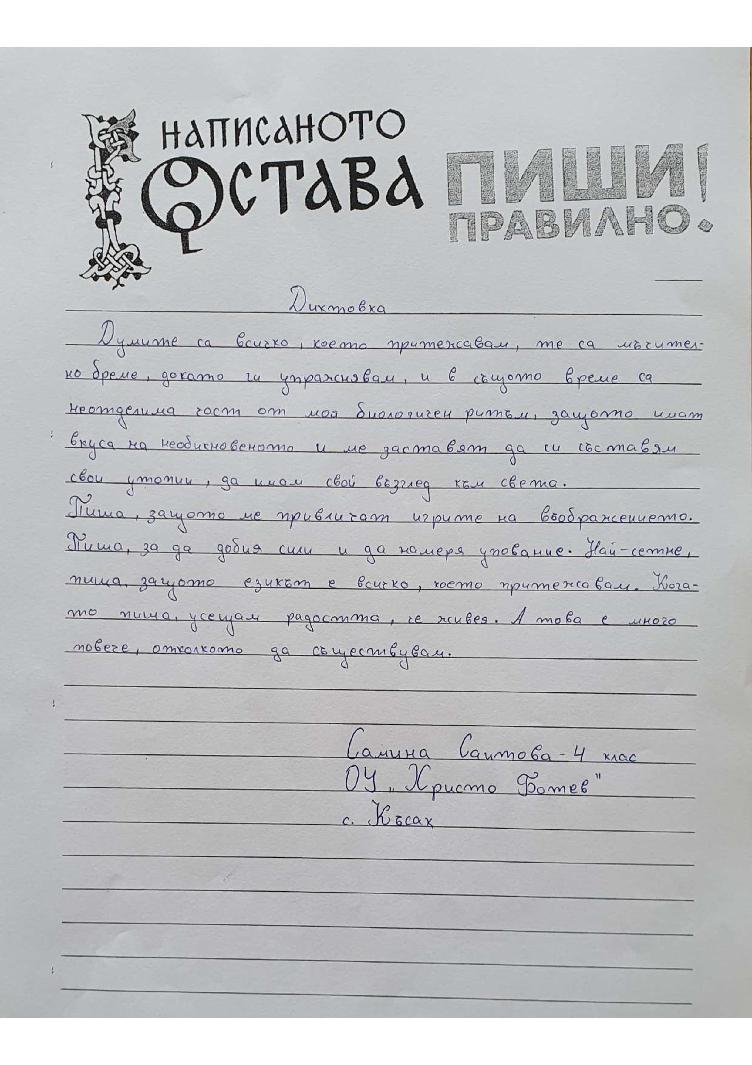 НАПИСАНОТО
ОСТАВА
ПИШИ!
ПРАВИЛНО.
Диктовка
Думите са всичко, което притежавам, те са мъчител-
но бреме, докато ги упражнявам, и в същото време са
неотделима част от моя биологичен ритъм, защото имат
вкуса на необикновеното и ме заставят да си съставям
свои утопии, да имам свой възглед към света.
Пиша, защото ме привличат игрите на въображението.
Пиша, за да добия сили и да намеря упование. Най-сетне,
пиша, защото езикът е всичко, което притежавам. Кога-
то пиша, усещам радостта, че живея. А това е много
повече, отколкото да съществувам.
Самина Саитова - 4 клас
ОУ „Христо Ботев"
с. Късак